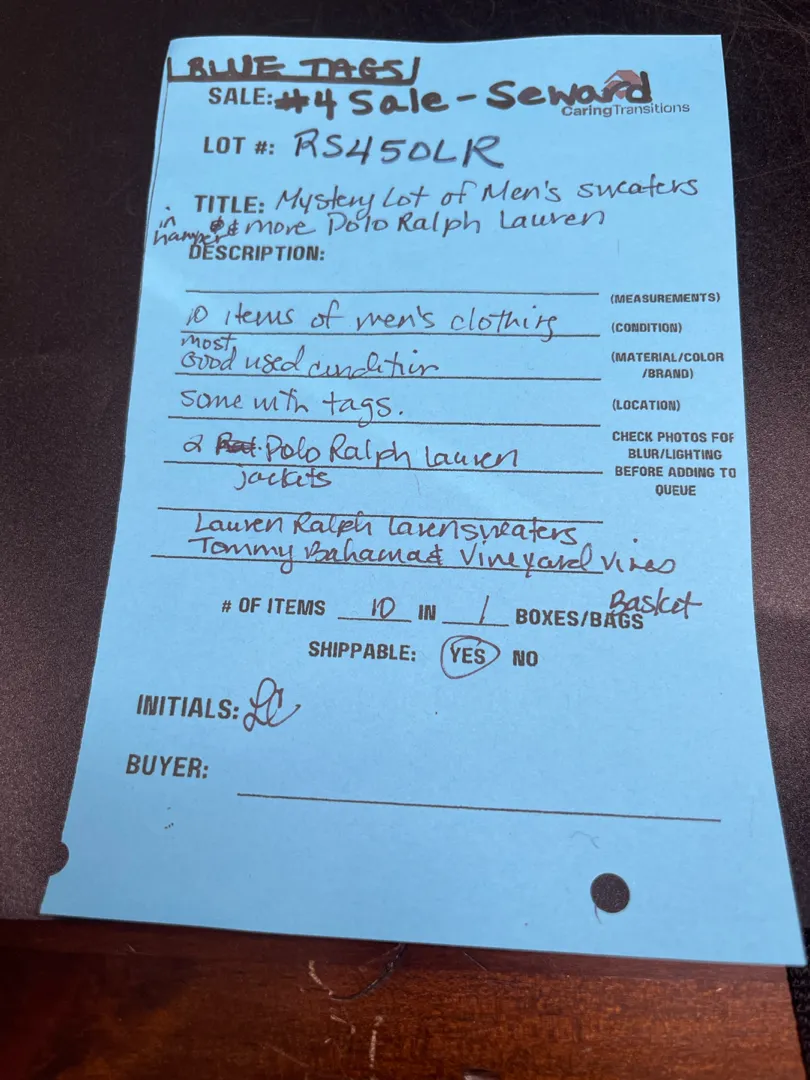 BLUE TAGS
SALE: #4 Sale - Seward
CaringTransitions
LOT #: RS450LR
TITLE: Mystery Lot of Men's sweaters
in hamper & more Polo Ralph Lauren
DESCRIPTION:
(MEASUREMENTS)
10 items of men's clothing
(CONDITION)
most
Good used condition
(MATERIAL/COLOR
/BRAND)
some with tags.
(LOCATION)
2 Polo Ralph Lauren
jackets
CHECK PHOTOS FOR
BLUR/LIGHTING
BEFORE ADDING TO
QUEUE
Lauren Ralph Laren sweaters
Tommy Bahama & Vineyard Vines
# OF ITEMS 10 IN 1 BOXES/BAGS Basket
SHIPPABLE: YES NO
INITIALS: LC
BUYER: